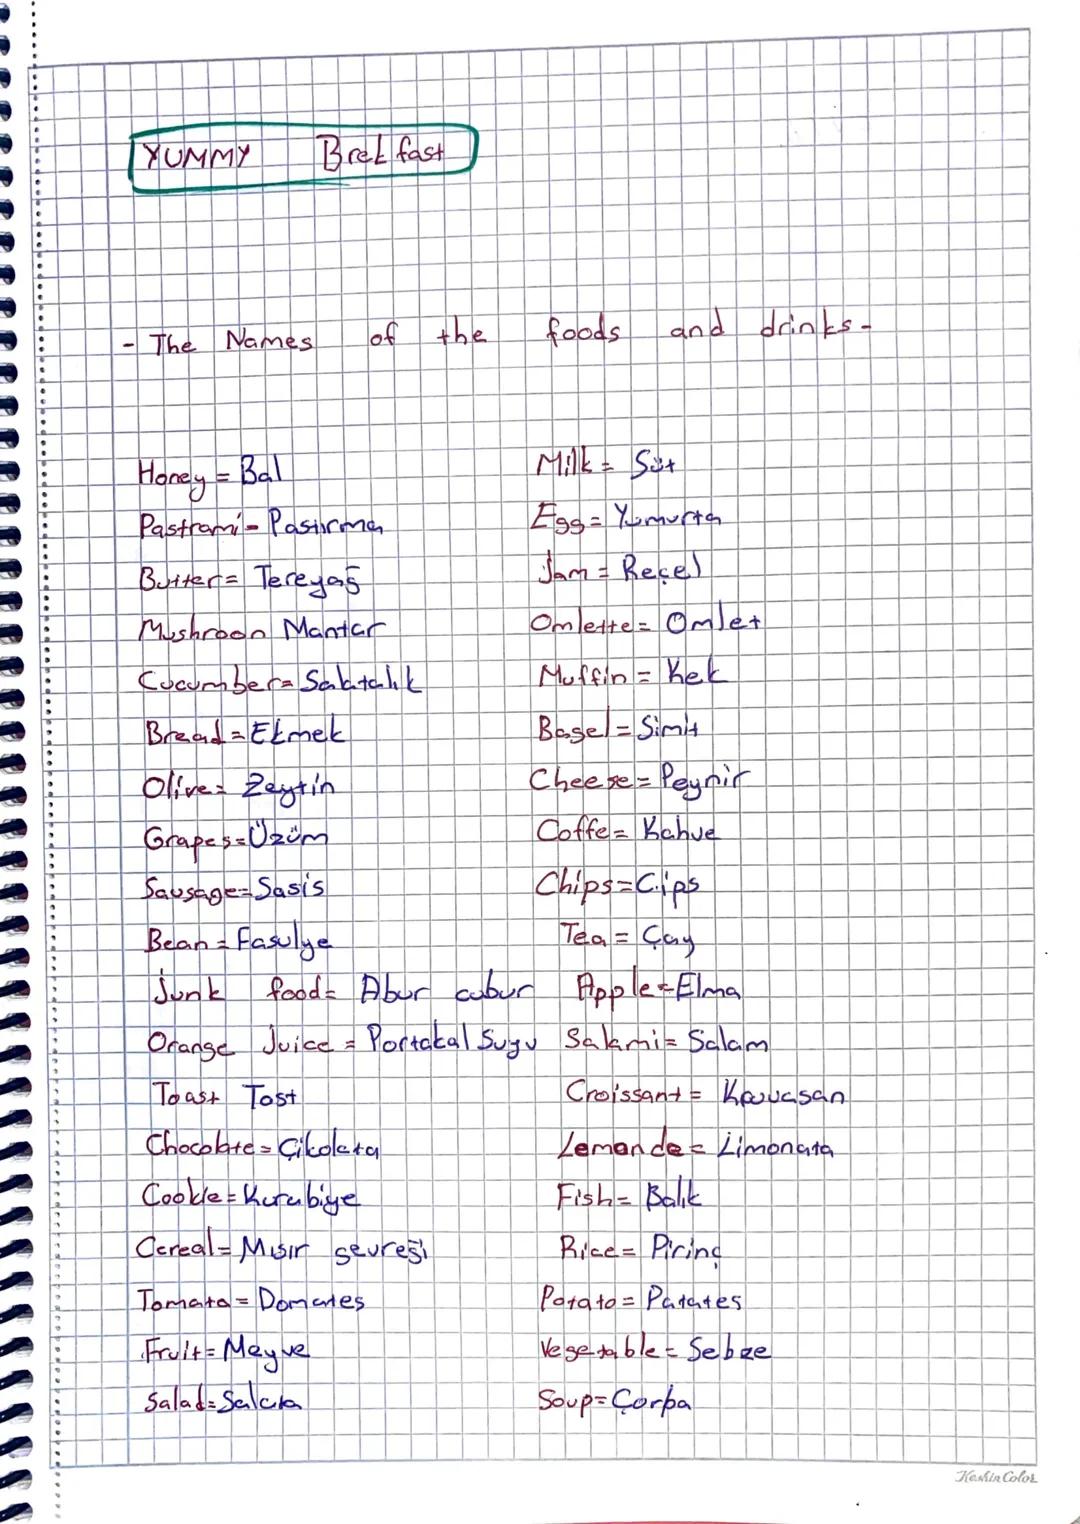 YUMMY Brekfast
- The Names of the foods and drinks -
Honey = Bal
Pastrami - Pastırma
Butter = Tereyağ
Mushroon Mantar
Cucumber = Salatalık
Bread = Ekmek
Olive = Zeytin
Grapes = Üzüm
Sausage = Sasis
Bean = Fasulye
Junk food = Abur cubur
Orange Juice = Portakal Suyu
Toast Tost
Chocolate = Çikolata
Cookie = Kurabiye
Cereal = Mısır gevreği
Tomato = Domates
Fruit = Meyve
Salad = Salata
Milk = Süt
Egg = Yumurta
Jam = Reçel
Omlette = Omlet
Muffin = Kek
Bagel = Simit
Cheese = Peynir
Coffe = Kahve
Chips = Cips
Tea = Çay
Apple = Elma
Salami = Salam
Croissant =
Lemonade = Limonata
Fish = Balık
Rice = Pirinç
Potato = Patates
Vegetable = Sebze
Soup = Çorba
Keskin Color